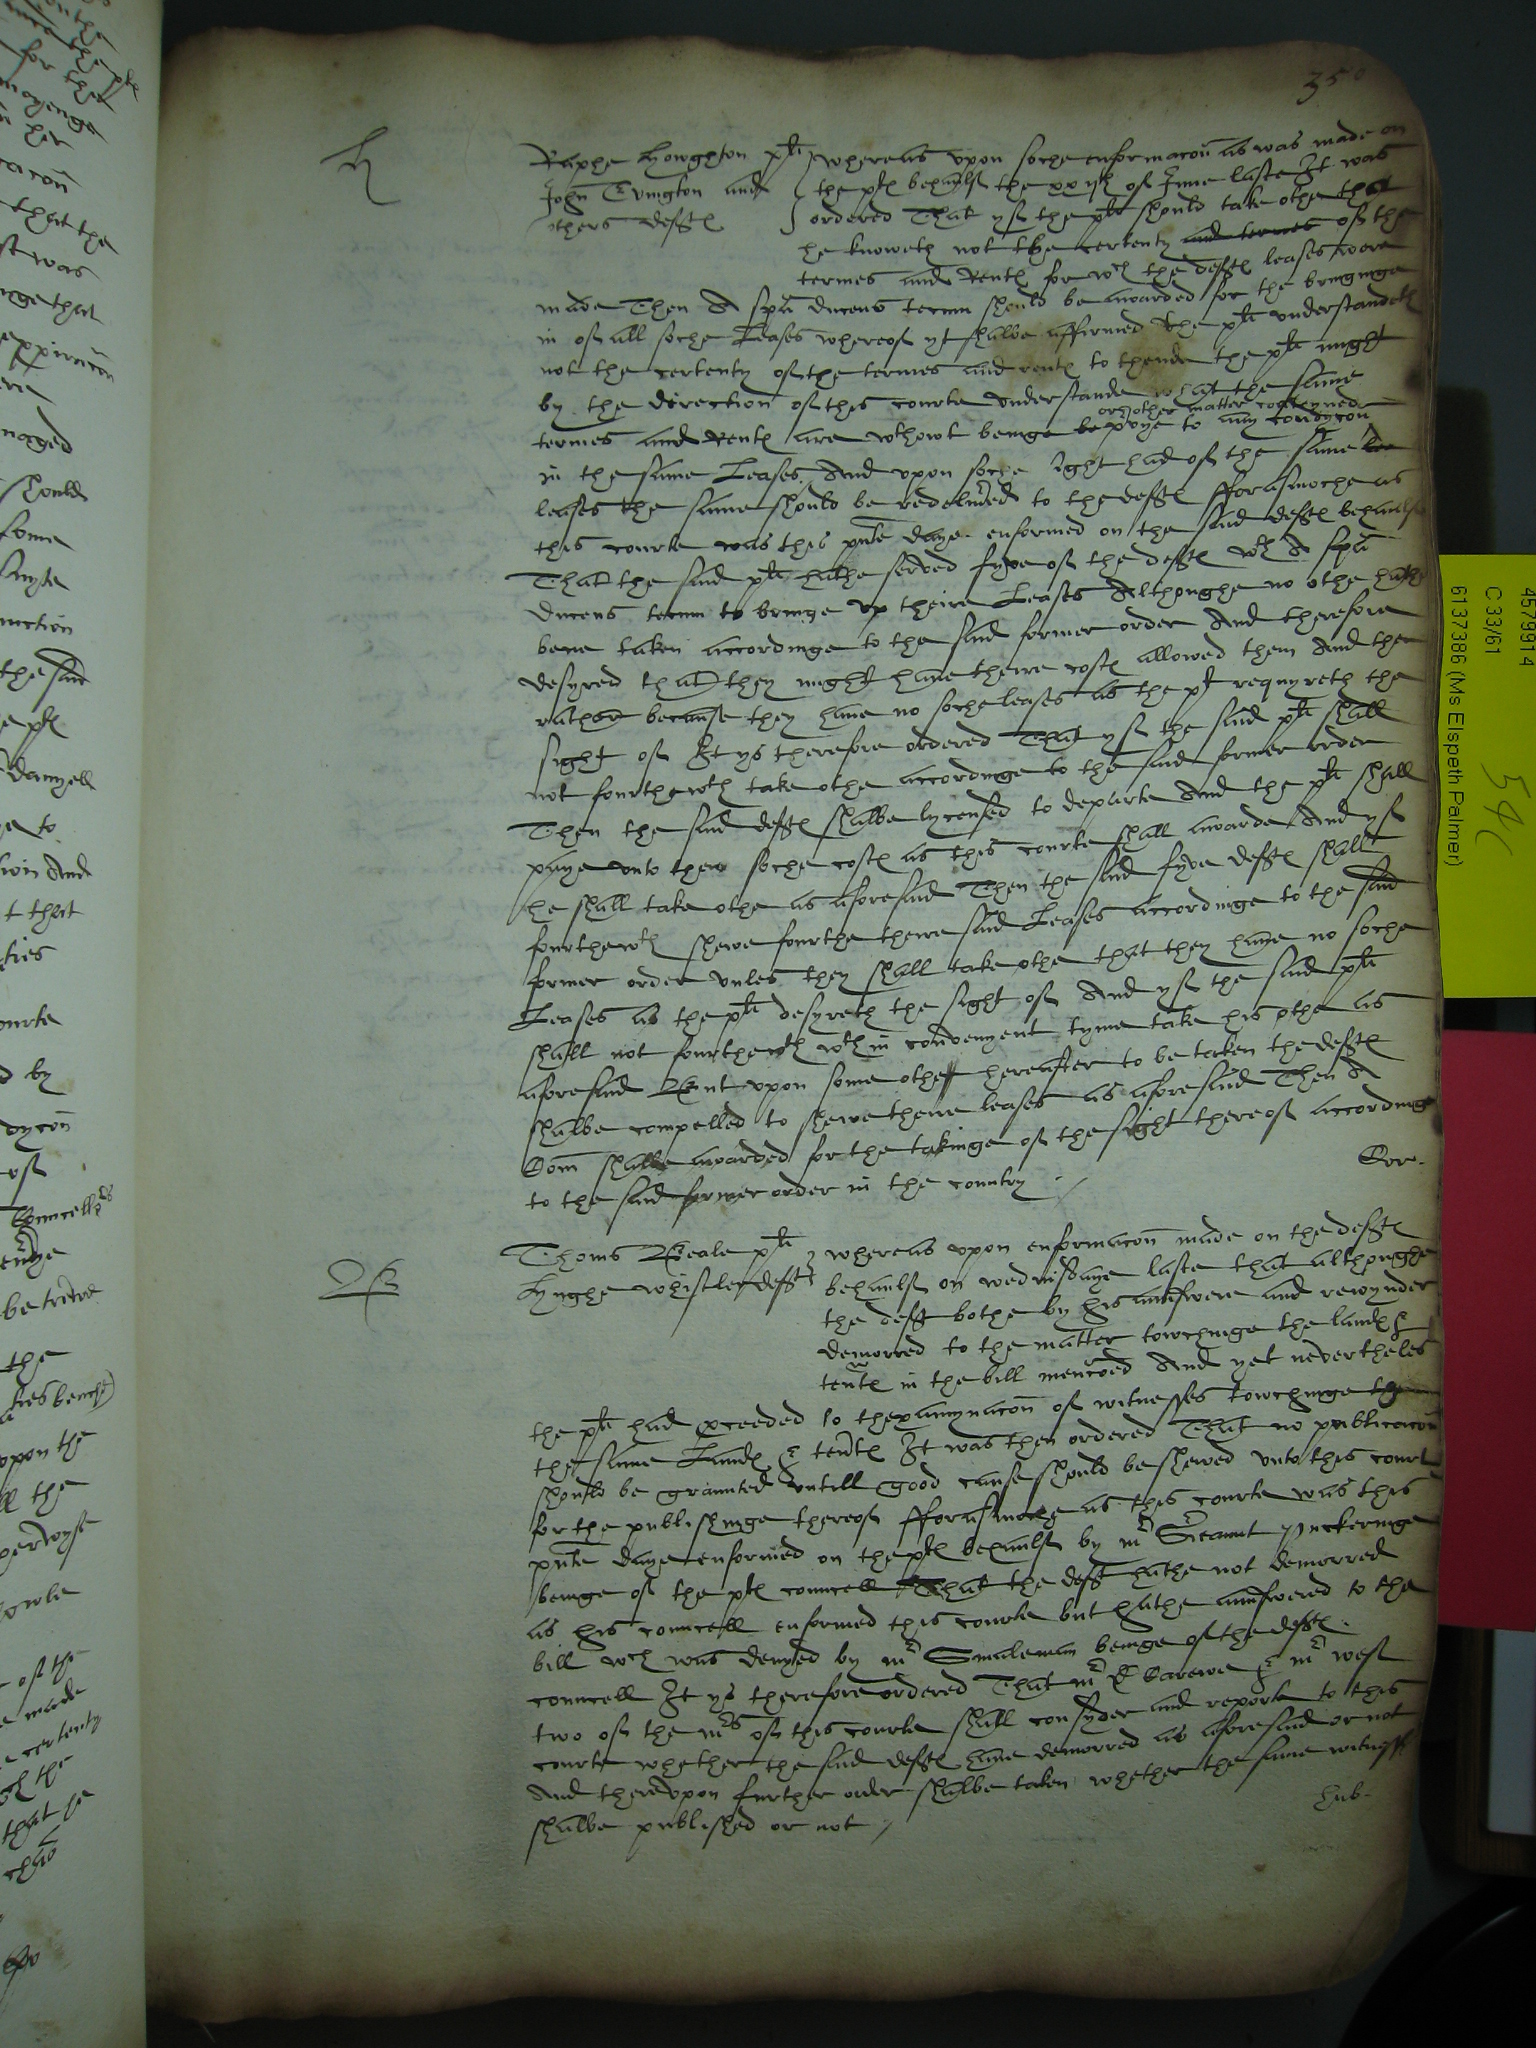 350
h
Raphe Howghton plt
John Evington and
others defts
whereas upon soche enformacon as was made on
the plts behaulf the xxijth of June laste It was
ordered That yf the plt should take othe that
he knoweth not the certenty and termes of the
termes and Rents for wch the defts leases were
made Then A spa ducens tecum should be awarded for the bringinge
in of all soche Leases whereof yt shalbe affirmed the plt understandeth
not the certenty of the termes and rents to thende the plt might
by the direction of this courte understande what the same
or other matter conteyned
termes and Rents are wthowt beinge to any condycon
in the same Leases And upon soche sight had of the same
leases the same should be redelivered to the defts fforasmoche as
this courte was this pnte daye enformed on the said defts behaulf
That the said plt hathe served fyve of the defts wth A spa
ducens tecum to bringe up theire Leases Althoughe no othe hathe
bene taken accordinge to the said former order And therefore
desyred that they might have theire costs allowed them And the
rather because they have no soche leases as the plt requyreth the
sight of It ys therefore ordered That yf the said plt shall
not fourthewth take othe accordinge to the said former order
Then the said defts shalbe lycensed to departe And the plt shall
paye unto them soche costs as this courte shall awarde And yf
he shall take othe as aforesaid Then the said fyve defts shall
fourthewth shewe fourthe theire said Leases accordinge to the said
former order unles they shall take othe that they have no soche
Leases as the plt desyreth the sight of And yf the said plt
shall not fourthewth wthin convenyent tyme take his othe as
aforesaid But upon some othe hereafter to be taken the defts
shalbe compelled to shewe theire leases as aforesaid Then A
Com shalbe awarded for the takinge of the sight thereof accordinge
to the said former order in the country
Cor.
W
Thoms Weale plt
Hughe Whistler deft
whereas upon enformacon made on the defts
behaulf on wednisdaye laste that althoughe
the deft bothe by his aunswere and rejoynder
demorred to the matter towchinge the lands &
tents in the bill mencoed And yet nevertheles
the plt had pceeded to thexamynacon of witnesses towchinge
the same Lands & tents It was then ordered That no publicacon
should be graunted untill good cause should be shewed unto this courte
for the publishinge thereof fforasmoche as this courte was this
pnte daye enformed on the plts behaulf by mr Sergeaunt Puckeringe
beinge of the plts councell That the deft hathe not demorred
as his councell enformed this courte but hathe aunswered to the
bill wch was denyed by mr Smaleman beinge of the defts
councell It ys therefore ordered That mr D Barewe & mr west
two of the mrs of this courte shall consyder and reporte to this
courte whether the said defts have demorred as aforesaid or not
And thereupon further order shalbe taken whether the same witness
shalbe published or not
hub.
4579914
C 33/61
6137386 (Ms Elspeth Palmer)